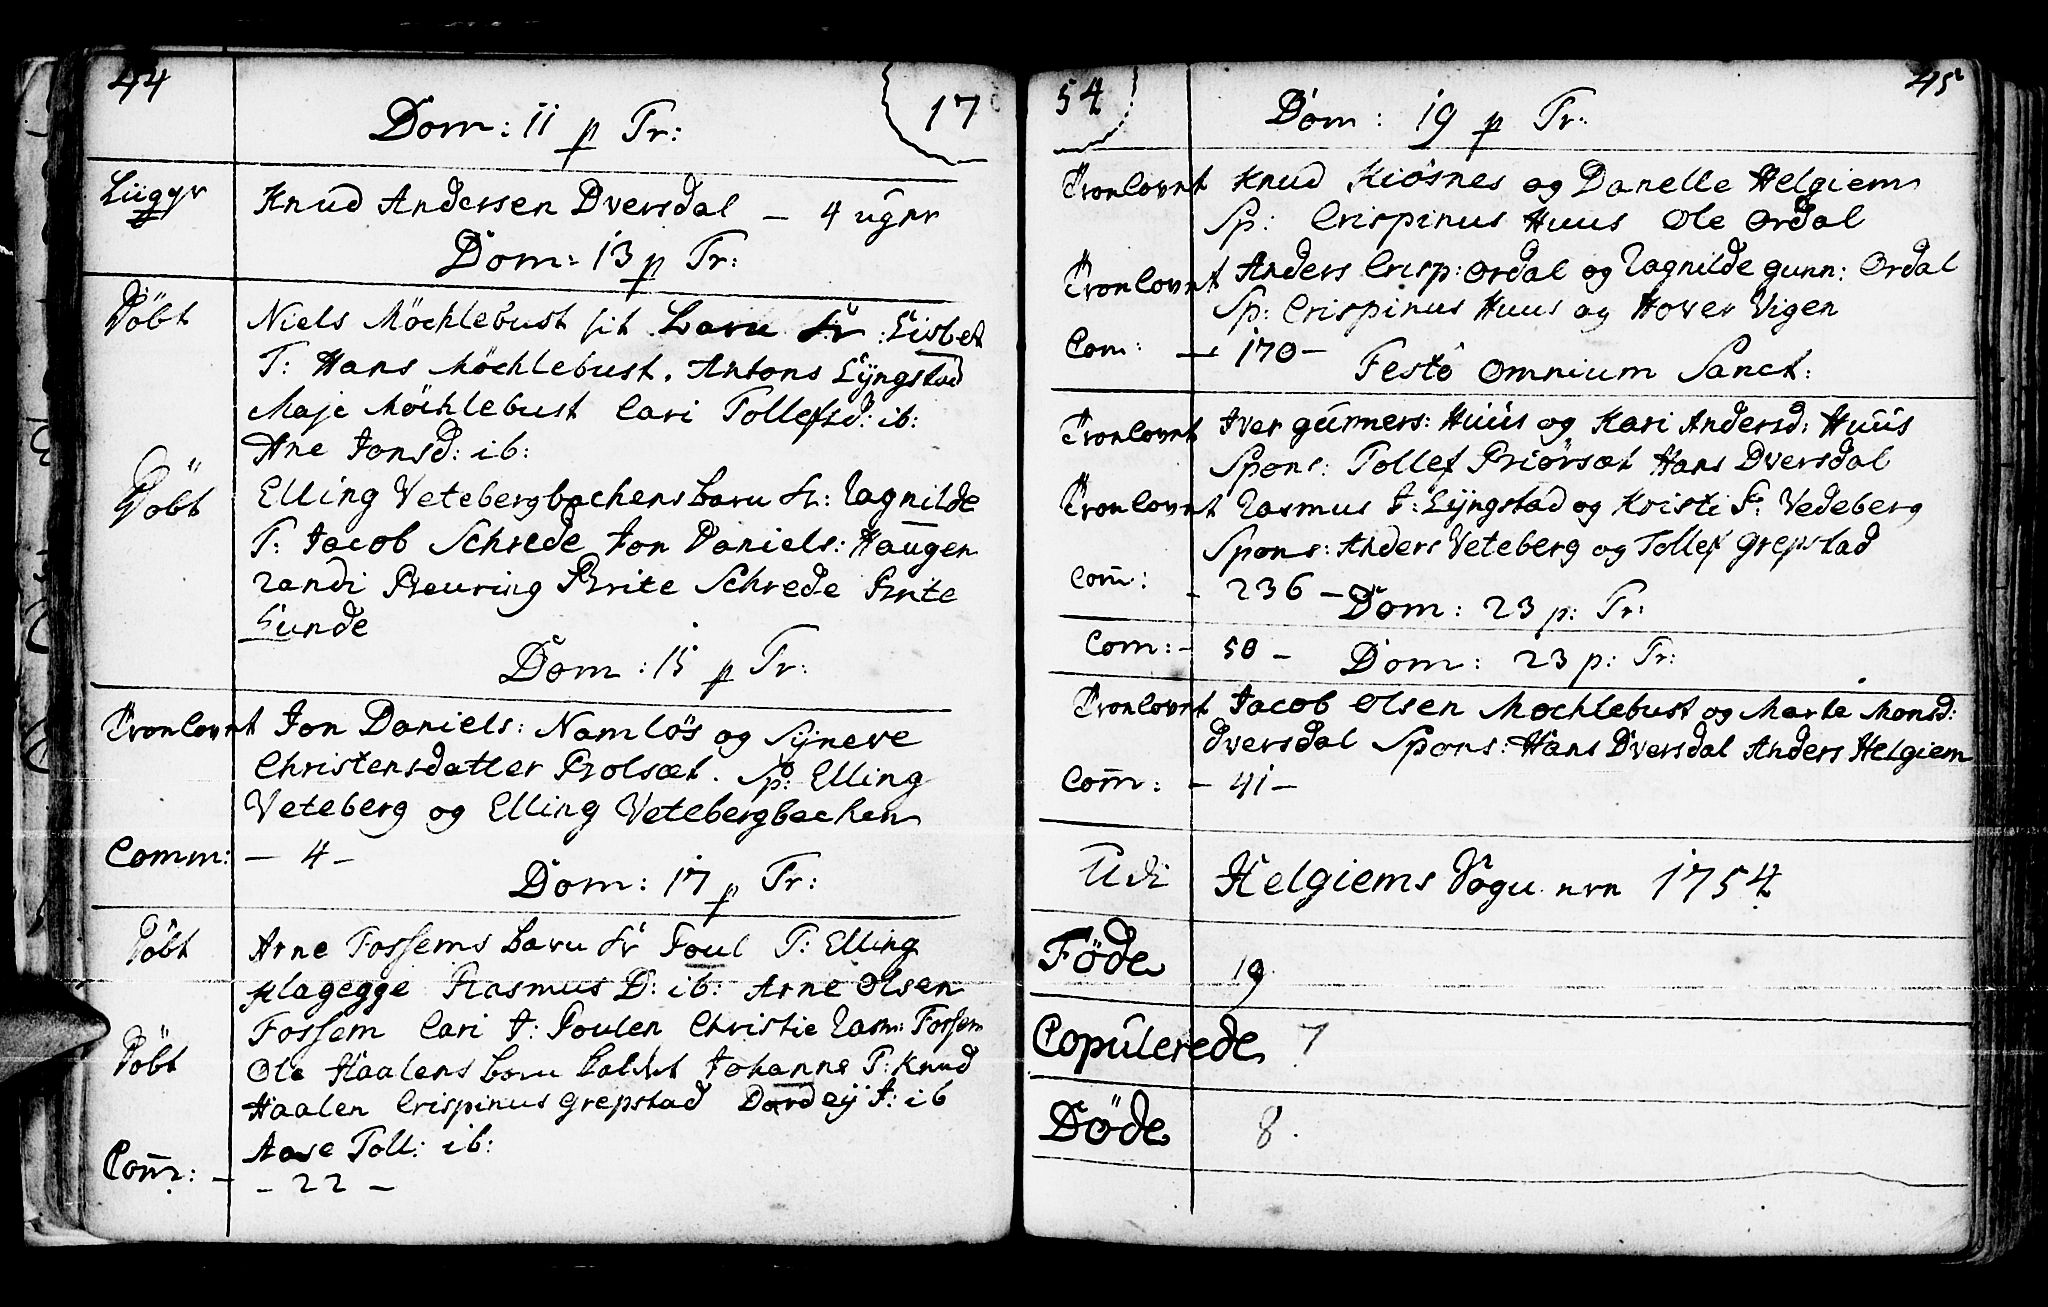 44
17
Dom: 11 p Tr:
Liigyr Knud Andersen Dversdal - 4 ugnr
Dom: 13 p Tr:
Döbt Niels Möchlebust sit Barn kr: Lisbet
T: Hans Möchlebust. Antons Lÿngstad
Maje Möchlebust Cari Tollefsd: ib:
Ane Jonsd: ib:
Döbt Elling Vetebergbachens barn kr: Ragnilde
T: Jacob Schrede Jon Daniels: Haugen
Randi Brite Schrede Brite
Sunde
Dom: 15 p Tr:
Tronlovnt Jon Daniels: Namlös og Sÿneve
Christensdatter Rolsæt. Sp: Elling
Veteberg og Elling Vetebergbachen
Comm: - 4 -
Dom: 17 p Tr:
Döbt Arne Fossems barn kr Poul T: Elling
Flagegge Rasmus D: ib: Arne Olsen
Fossem Cari J: Poulen Christie Rasm: Fossem
Döbt Ole Haalens barn Johanne T: Knud
Haalen Crispinus Grepstad Dordeÿ J: ib
Aase Toll: ib:
Com: - - 22 -
54
45
Dom: 19 p Tr:
Tronlovnt Knud Kiösnes og Danelle Helgiem
Sp: Crispinus Huus Ole Ordal
Tronlovnt Anders Crisp: Ordal og Ragnilde Gunn: Ordal
Sp: Crispinus Huus og Hover Vigen
Com: - 170 -
Festo Omnium Sanct:
Tronlovnt Iver Gunners: Huus og Kari Andersd: Huus
Spons: Tollef Briörsæt Hans Dversdal
Tronlovnt Rasmus J: Lÿngstad og Kristi P: Vedeberg
Spons: Anders Veteberg og Tollef Grepstad
Com: - 236 -
Dom: 23 p: Tr:
Com: - 50 -
Dom: 23 p: Tr:
Tronlovnt Jacob Olsen Mochlebust og Marte Monsd:
Dversdal Spons: Hans Dversdal Anders Helgiem
Com: - 41 -
Udi Helgiems Sogn 1754
Föde 19
Copulerede 7
Döde 8.